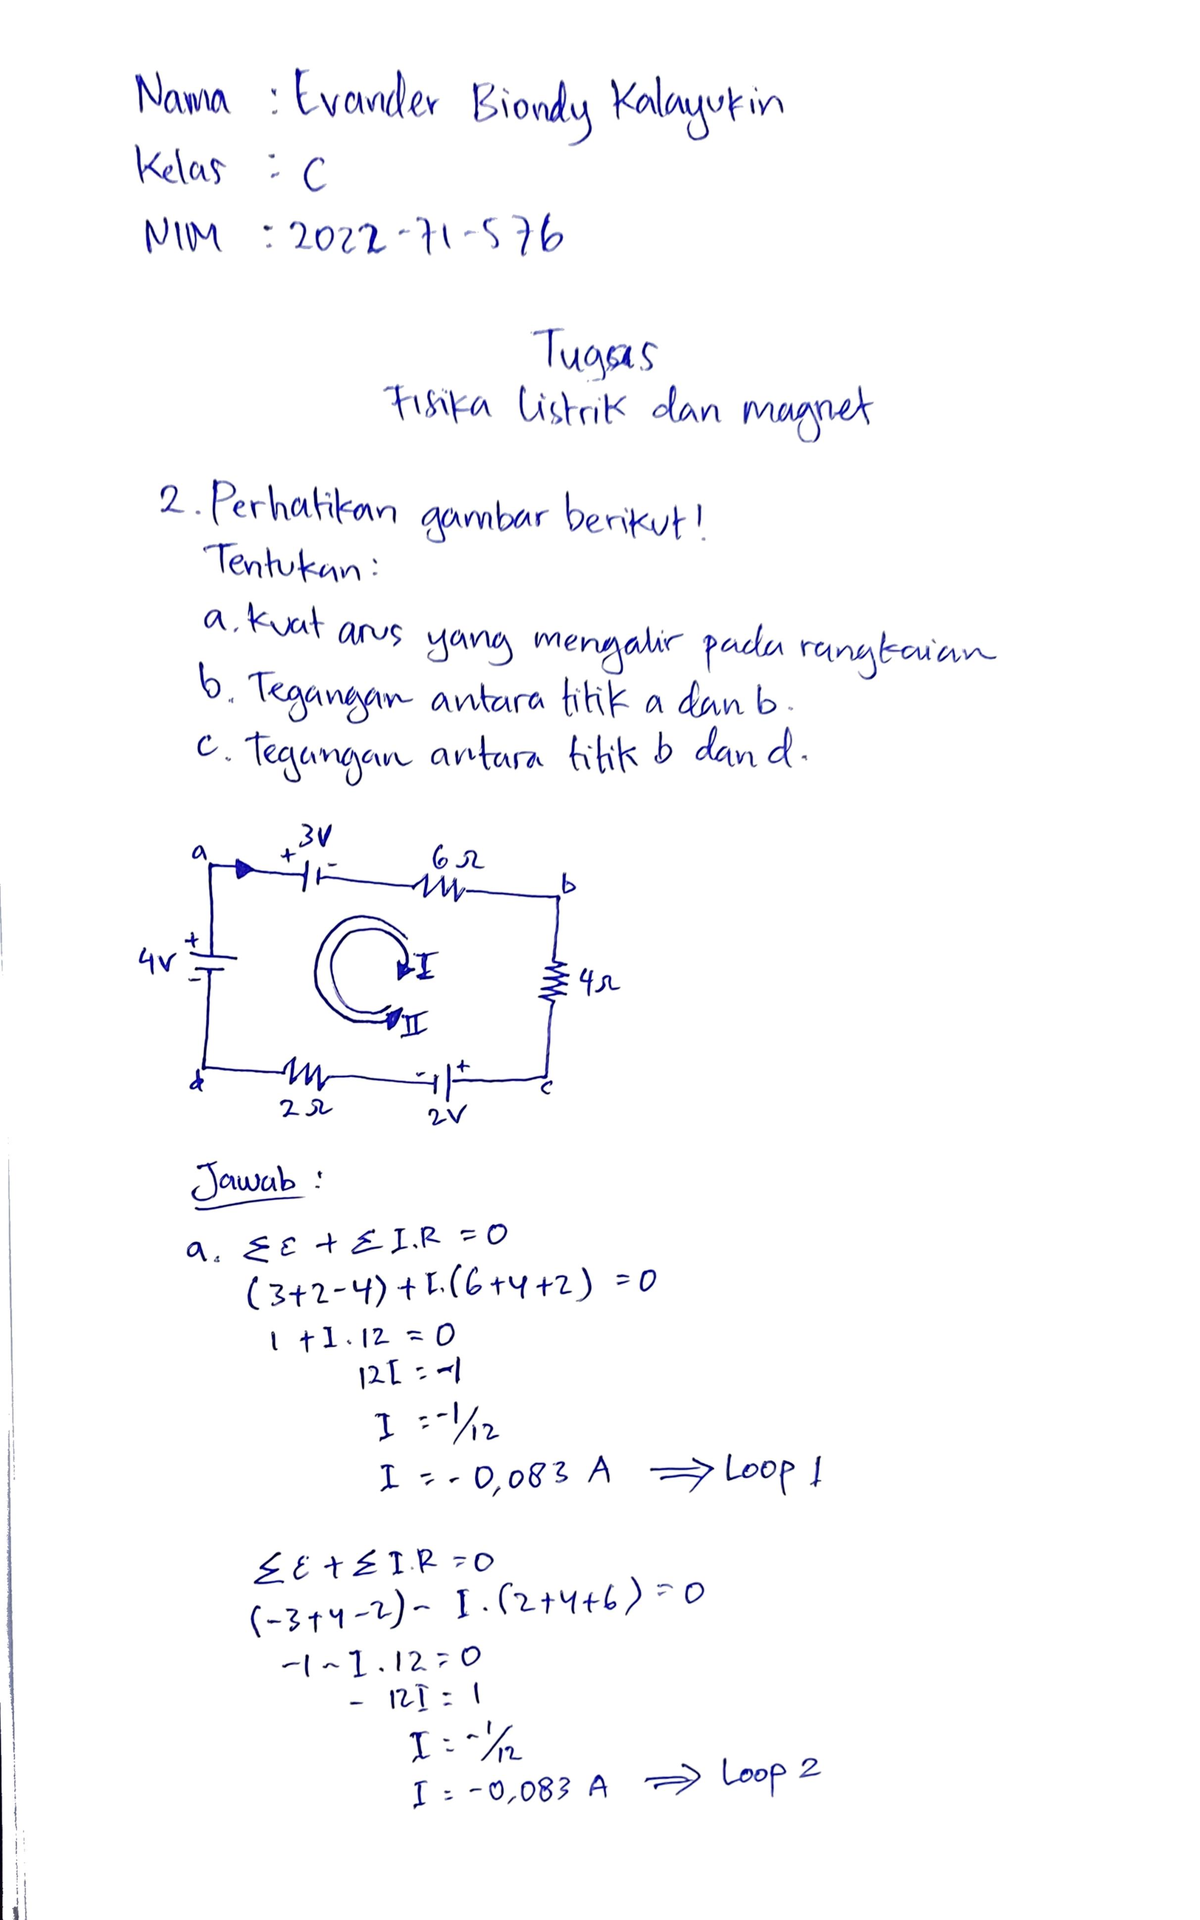 Nama : Evander Biondy Kalayukin
Kelas : C
NIM : 2022-71-576
Tugas
Fisika listrik dan magnet
2. Perhatikan gambar berikut!
Tentukan:
a. Kuat arus yang mengalir pada rangkaian
b. Tegangan antara titik a dan b.
c. Tegangan antara titik b dan d.
3V
a + - 6Ω b
4V + -
I
4Ω
II
d - + c
2Ω 2V
Jawab :
a. Σε + Σ I.R = 0
(3+2-4) + I.(6+4+2) = 0
1 + I.12 = 0
12I = -1
I = -1/12
I = -0,083 A ⇒ Loop 1
Σε + Σ I.R = 0
(-3+4-2) - I.(2+4+6) = 0
-1 - I.12 = 0
- 12I = 1
I = -1/12
I = -0,083 A ⇒ Loop 2